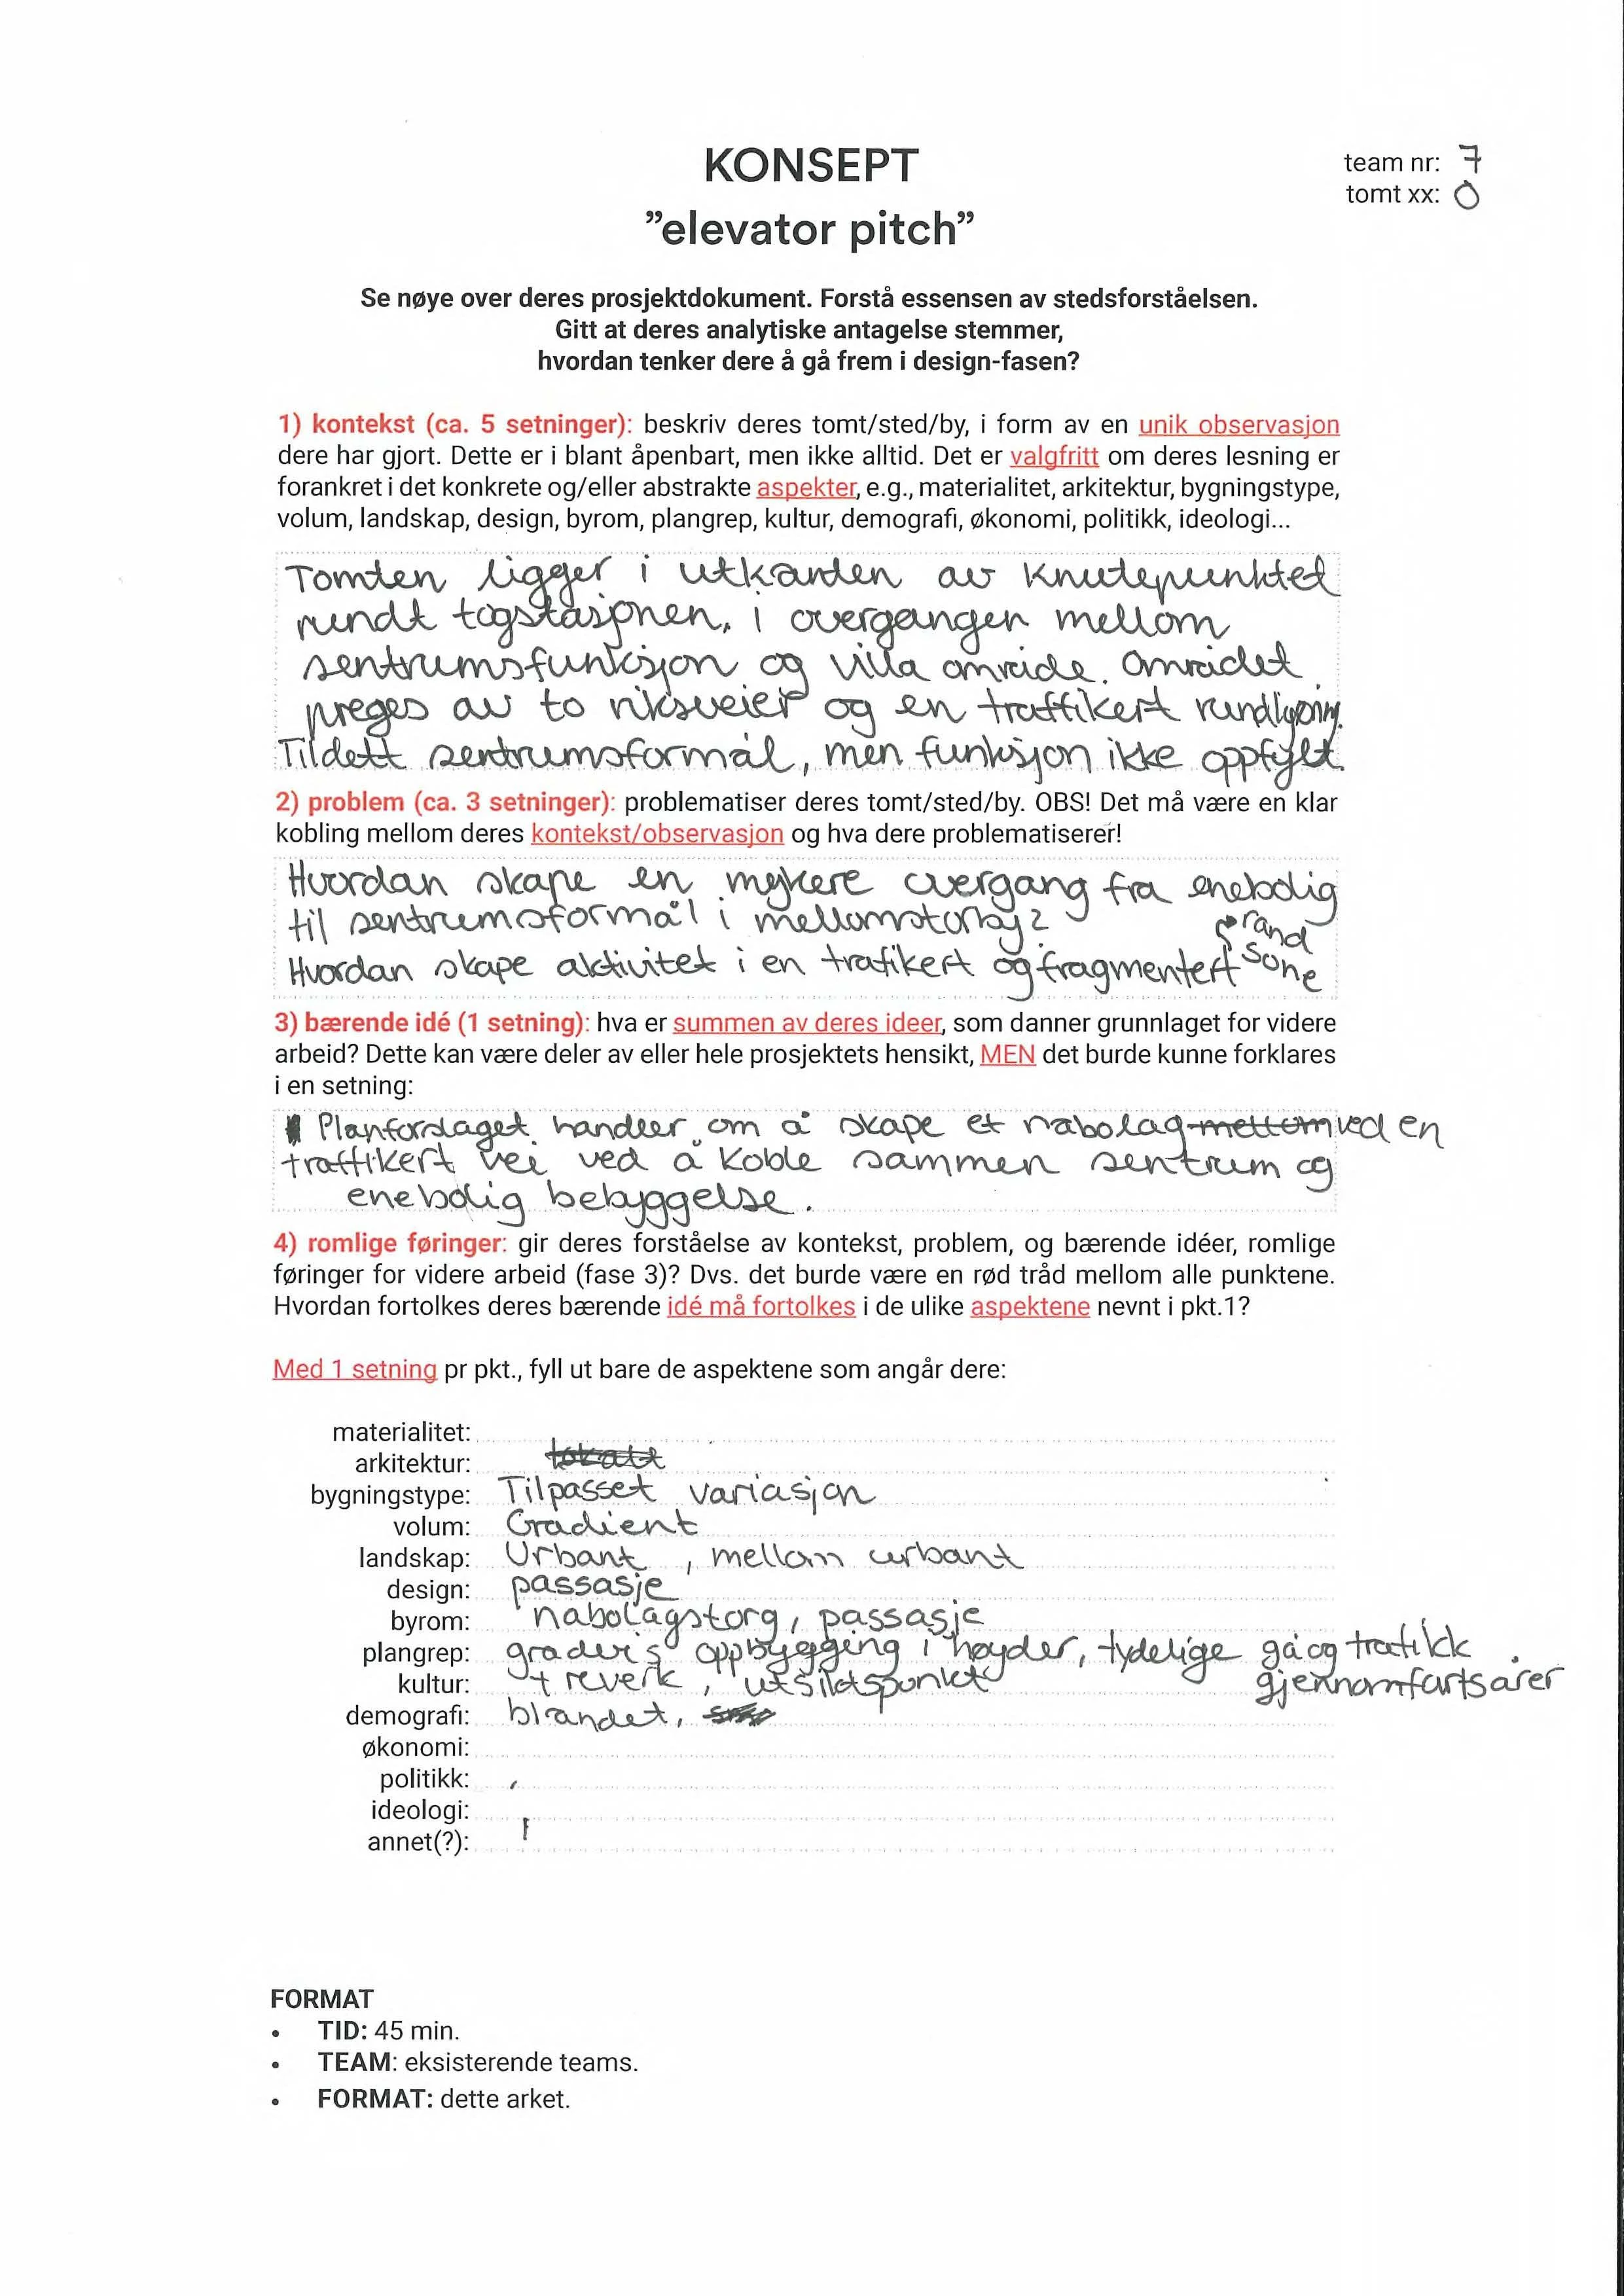 KONSEPT
"elevator pitch"
team nr: 7
tomt xx: O
Se nøye over deres prosjektdokument. Forstå essensen av stedsforståelsen.
Gitt at deres analytiske antagelse stemmer,
hvordan tenker dere å gå frem i design-fasen?
1) kontekst (ca. 5 setninger): beskriv deres tomt/sted/by, i form av en unik observasjon
dere har gjort. Dette er i blant åpenbart, men ikke alltid. Det er valgfritt om deres lesning er
forankret i det konkrete og/eller abstrakte aspekter, e.g., materialitet, arkitektur, bygningstype,
volum, landskap, design, byrom, plangrep, kultur, demografi, økonomi, politikk, ideologi...
Tomten ligger i utkanten av knutepunktet
rundt togstasjonen, i overgangen mellom
sentrumsfunksjon og villa område. Området
preges av to riksveier og en traffikert rundkjøring.
Tildelt sentrumsformål, men funksjon ikke oppfylt.
2) problem (ca. 3 setninger): problematiser deres tomt/sted/by. OBS! Det må være en klar
kobling mellom deres kontekst/observasjon og hva dere problematiserer!
Hvordan skape en mykere overgang fra enebolig
til sentrumsformål i mellomstorby?
Hvordan skape aktivitet i en trafikert og fragmentert rand sone
3) bærende idé (1 setning): hva er summen av deres ideer, som danner grunnlaget for videre
arbeid? Dette kan være deler av eller hele prosjektets hensikt, MEN det burde kunne forklares
i en setning:
Planforslaget handler om å skape et nabolag mellom ved en
traffikert vei ved å koble sammen sentrum og
enebolig bebyggelse.
4) romlige føringer: gir deres forståelse av kontekst, problem, og bærende idéer, romlige
føringer for videre arbeid (fase 3)? Dvs. det burde være en rød tråd mellom alle punktene.
Hvordan fortolkes deres bærende idé må fortolkes i de ulike aspektene nevnt i pkt.1?
Med 1 setning pr pkt., fyll ut bare de aspektene som angår dere:
materialitet:
arkitektur:
bygningstype: Tilpasset variasjon
volum: Gradient
landskap: Urbant, mellom urbant
design: passasje
byrom: nabolagstorg, passasje
plangrep: gradvis oppbygging i høyder, tydelige gå og trafikk gjennomfartsårer
kultur: treverk, utsiktspunkt
demografi: blandet,
økonomi:
politikk:
ideologi:
annet(?):
FORMAT
• TID: 45 min.
• TEAM: eksisterende teams.
• FORMAT: dette arket.